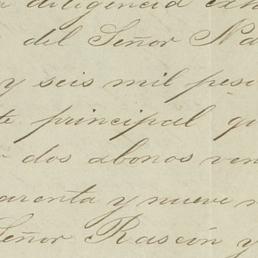 diligencia
del Señor
y seis mil
principal
dos abonos
y nueve
Señor Rascón y